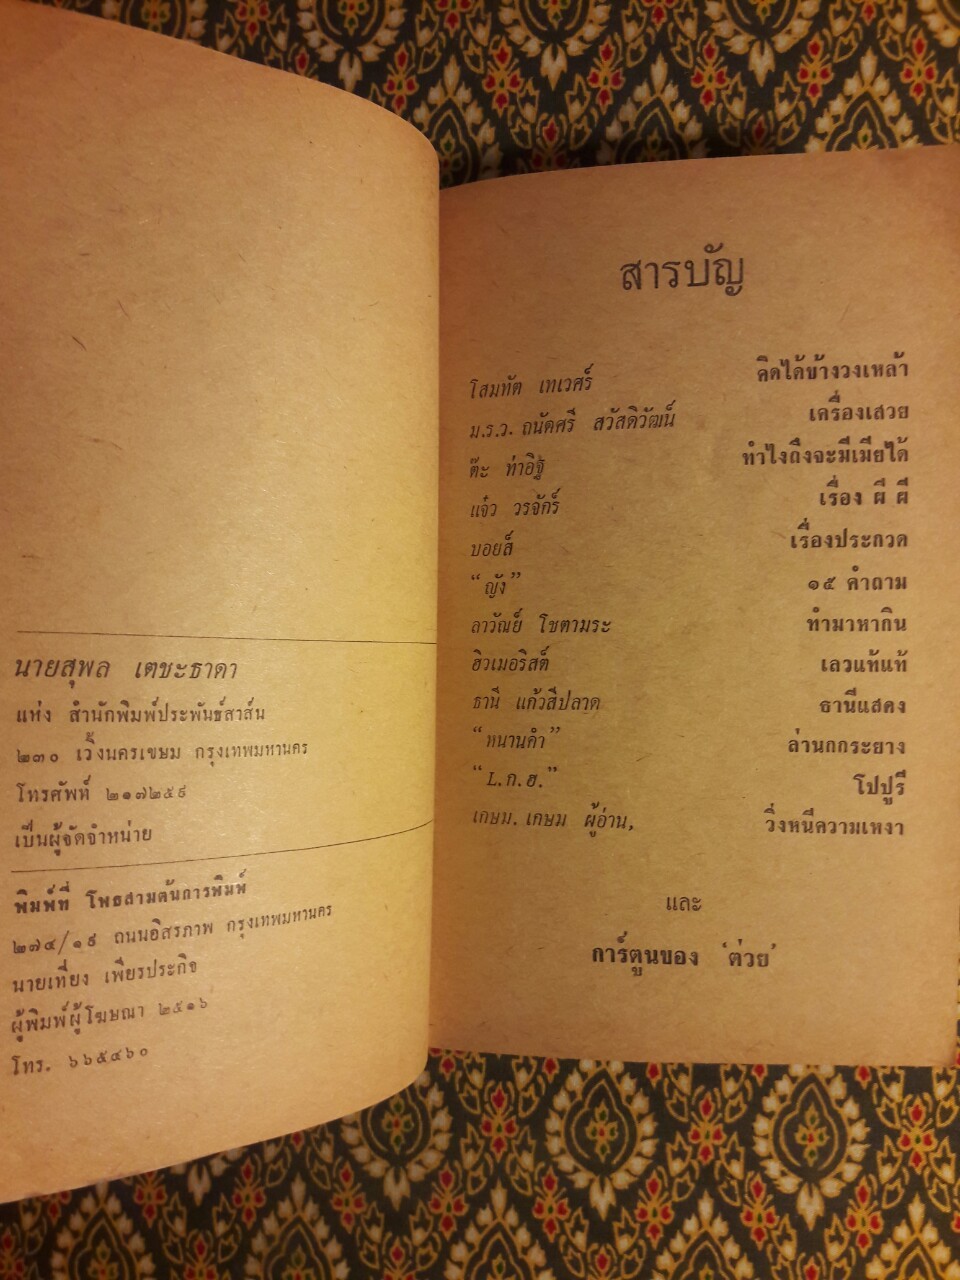 นายสุพล เตชะธาดา
แห่ง สำนักพิมพ์ประพันธ์สาส์น
๒๓๐ เวิ้งนครเขษม กรุงเทพมหานคร
โทรศัพท์ ๒๑๗๒๕๙
เป็นผู้จัดจำหน่าย
พิมพ์ที่ โพธสามต้นการพิมพ์
๒๗๔/๑๙ ถนนอิสรภาพ กรุงเทพมหานคร
นายเที่ยง เพียรประกิจ
ผู้พิมพ์ผู้โฆษณา ๒๕๑๖
โทร. ๖๖๕๔๖๐
สารบัญ
โสมทัต เทเวศร์ คิดได้ข้างวงเหล้า
ม.ร.ว. ถนัดศรี สวัสดิวัฒน์ เครื่องเสวย
ต๊ะ ท่าอิฐ ทำไงถึงจะมีเมียได้
แจ๋ว วรจักร์ เรื่อง ผี ผี
บอยส์ เรื่องประกวด
“ญัง” ๑๕ คำถาม
ลาวัณย์ โชตามระ ทำมาหากิน
ฮิวเมอริสต์ เลวแท้แท้
ธานี แก้วสีปลาด ธานีแสดง
“หนานคำ” ล่านกกระยาง
“L.ก.ฮ.” โปปูรี
เกษม. เกษม ผู้อ่าน, วิ่งหนีความเหงา
และ
การ์ตูนของ ‘ต่วย’